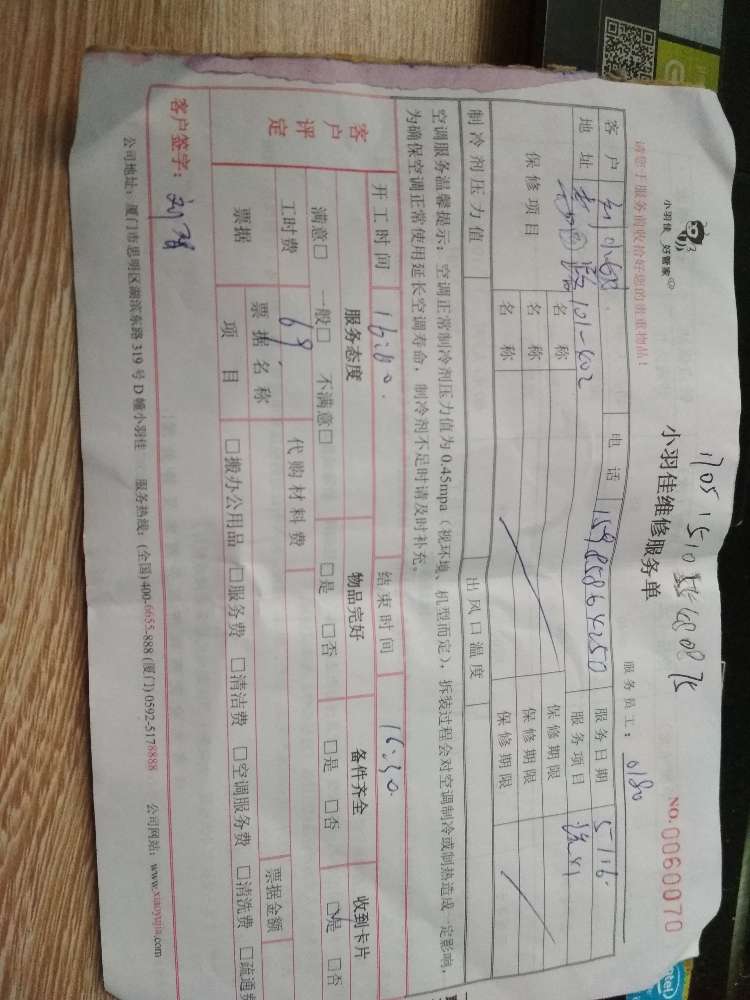 小羽佳 好管家
170515103568075
小羽佳维修服务单
NO.0060070
请您于服务前收拾好您的贵重物品!
服务员工: 0180
客户 电话 服务日期 5/16
地址 101-402 服务项目
保修项目 名称 保修期限
名称 保修期限
名称 保修期限
制冷剂压力值 出风口温度
空调服务温馨提示:空调正常制冷剂压力值为0.45mpa(视环境、机型而定),拆装过程会对空调制冷或制热造成一定影响,
为确保空调正常使用延长空调寿命,制冷剂不足时请及时补充。
开工时间 结束时间 16:30
客户评定 服务态度 物品完好 备件齐全 收到卡片
满意□ 一般□ 不满意□ □是 □否 □是 □否 ☑是 □否
工时费 69 代购材料费
票据 票据名称 票据金额
项目 □搬办公用品 □服务费 □清洁费 □空调服务费 □清洗费 □疏通费
客户签字:
公司地址:厦门市思明区湖滨东路319号D幢小羽佳 服务热线:(全国)400-6655-888 (厦门)0592-5178888 公司网站:www.xiaoyujia.com